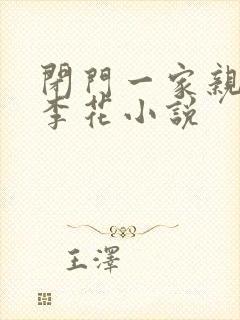 閉門一家親
李花小說
王澤